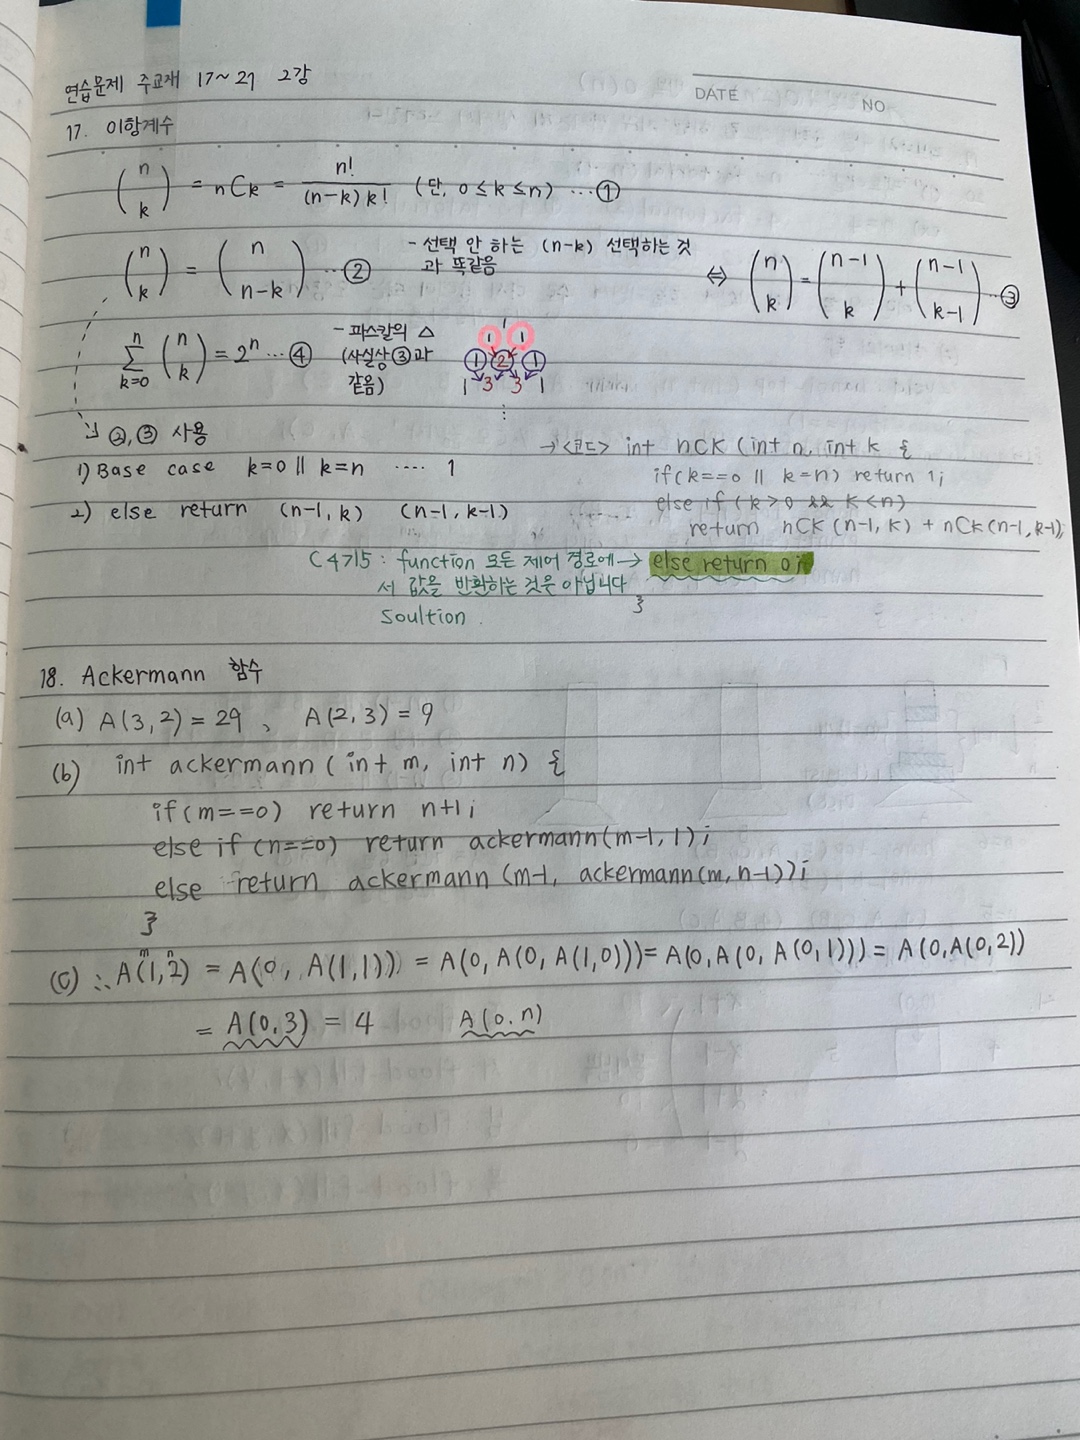 연습문제 주교재 17~21 2강
DATE NO
17. 이항계수
(n k) = nCk = n! / (n-k)k! (단, 0≤k≤n) … ①
(n k) = (n n-k) … ② - 선택 안 하는 (n-k) 선택하는 것과 똑같음 ⇔ (n k) = (n-1 k) + (n-1 k-1) … ③
n Σ k=0 (n k) = 2ⁿ … ④ - 파스칼의 △ (사실상 ③과 같음)
1
1 1
1 2 1
1 3 3 1
⋮
②, ③ 사용
1) Base case k=0 || k=n ‥‥ 1
2) else return (n-1, k) (n-1, k-1)
→ <코드> int nCK (int n, int k {
if(k==0 || k=n) return 1;
else if (k>0 && K<n)
return nCK(n-1, K) + nCK(n-1, k-1);
C4715 : function 모든 제어 경로에 → else return 0;
서 값을 반환하는 것은 아닙니다
}
Soultion.
18. Ackermann 함수
(a) A(3,2) = 29, A(2,3) = 9
(b) int ackermann (int m, int n) {
if(m==0) return n+1;
else if (n==0) return ackermann(m-1, 1);
else return ackermann (m-1, ackermann(m, n-1));
}
m n
(c) ∴ A(1,2) = A(0, A(1,1)) = A(0, A(0, A(1,0))) = A(0, A(0, A(0,1))) = A(0,A(0,2))
= A(0,3) = 4 A(0.n)